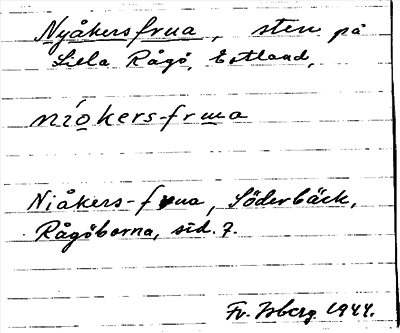 Nyåkersfrua, sten på
Lilla Rågö, Estland,
níokers-frua
Niåkers-frua, Söderbäck,
Rågöborna, sid. 7.
Fr. Isberg 1944.